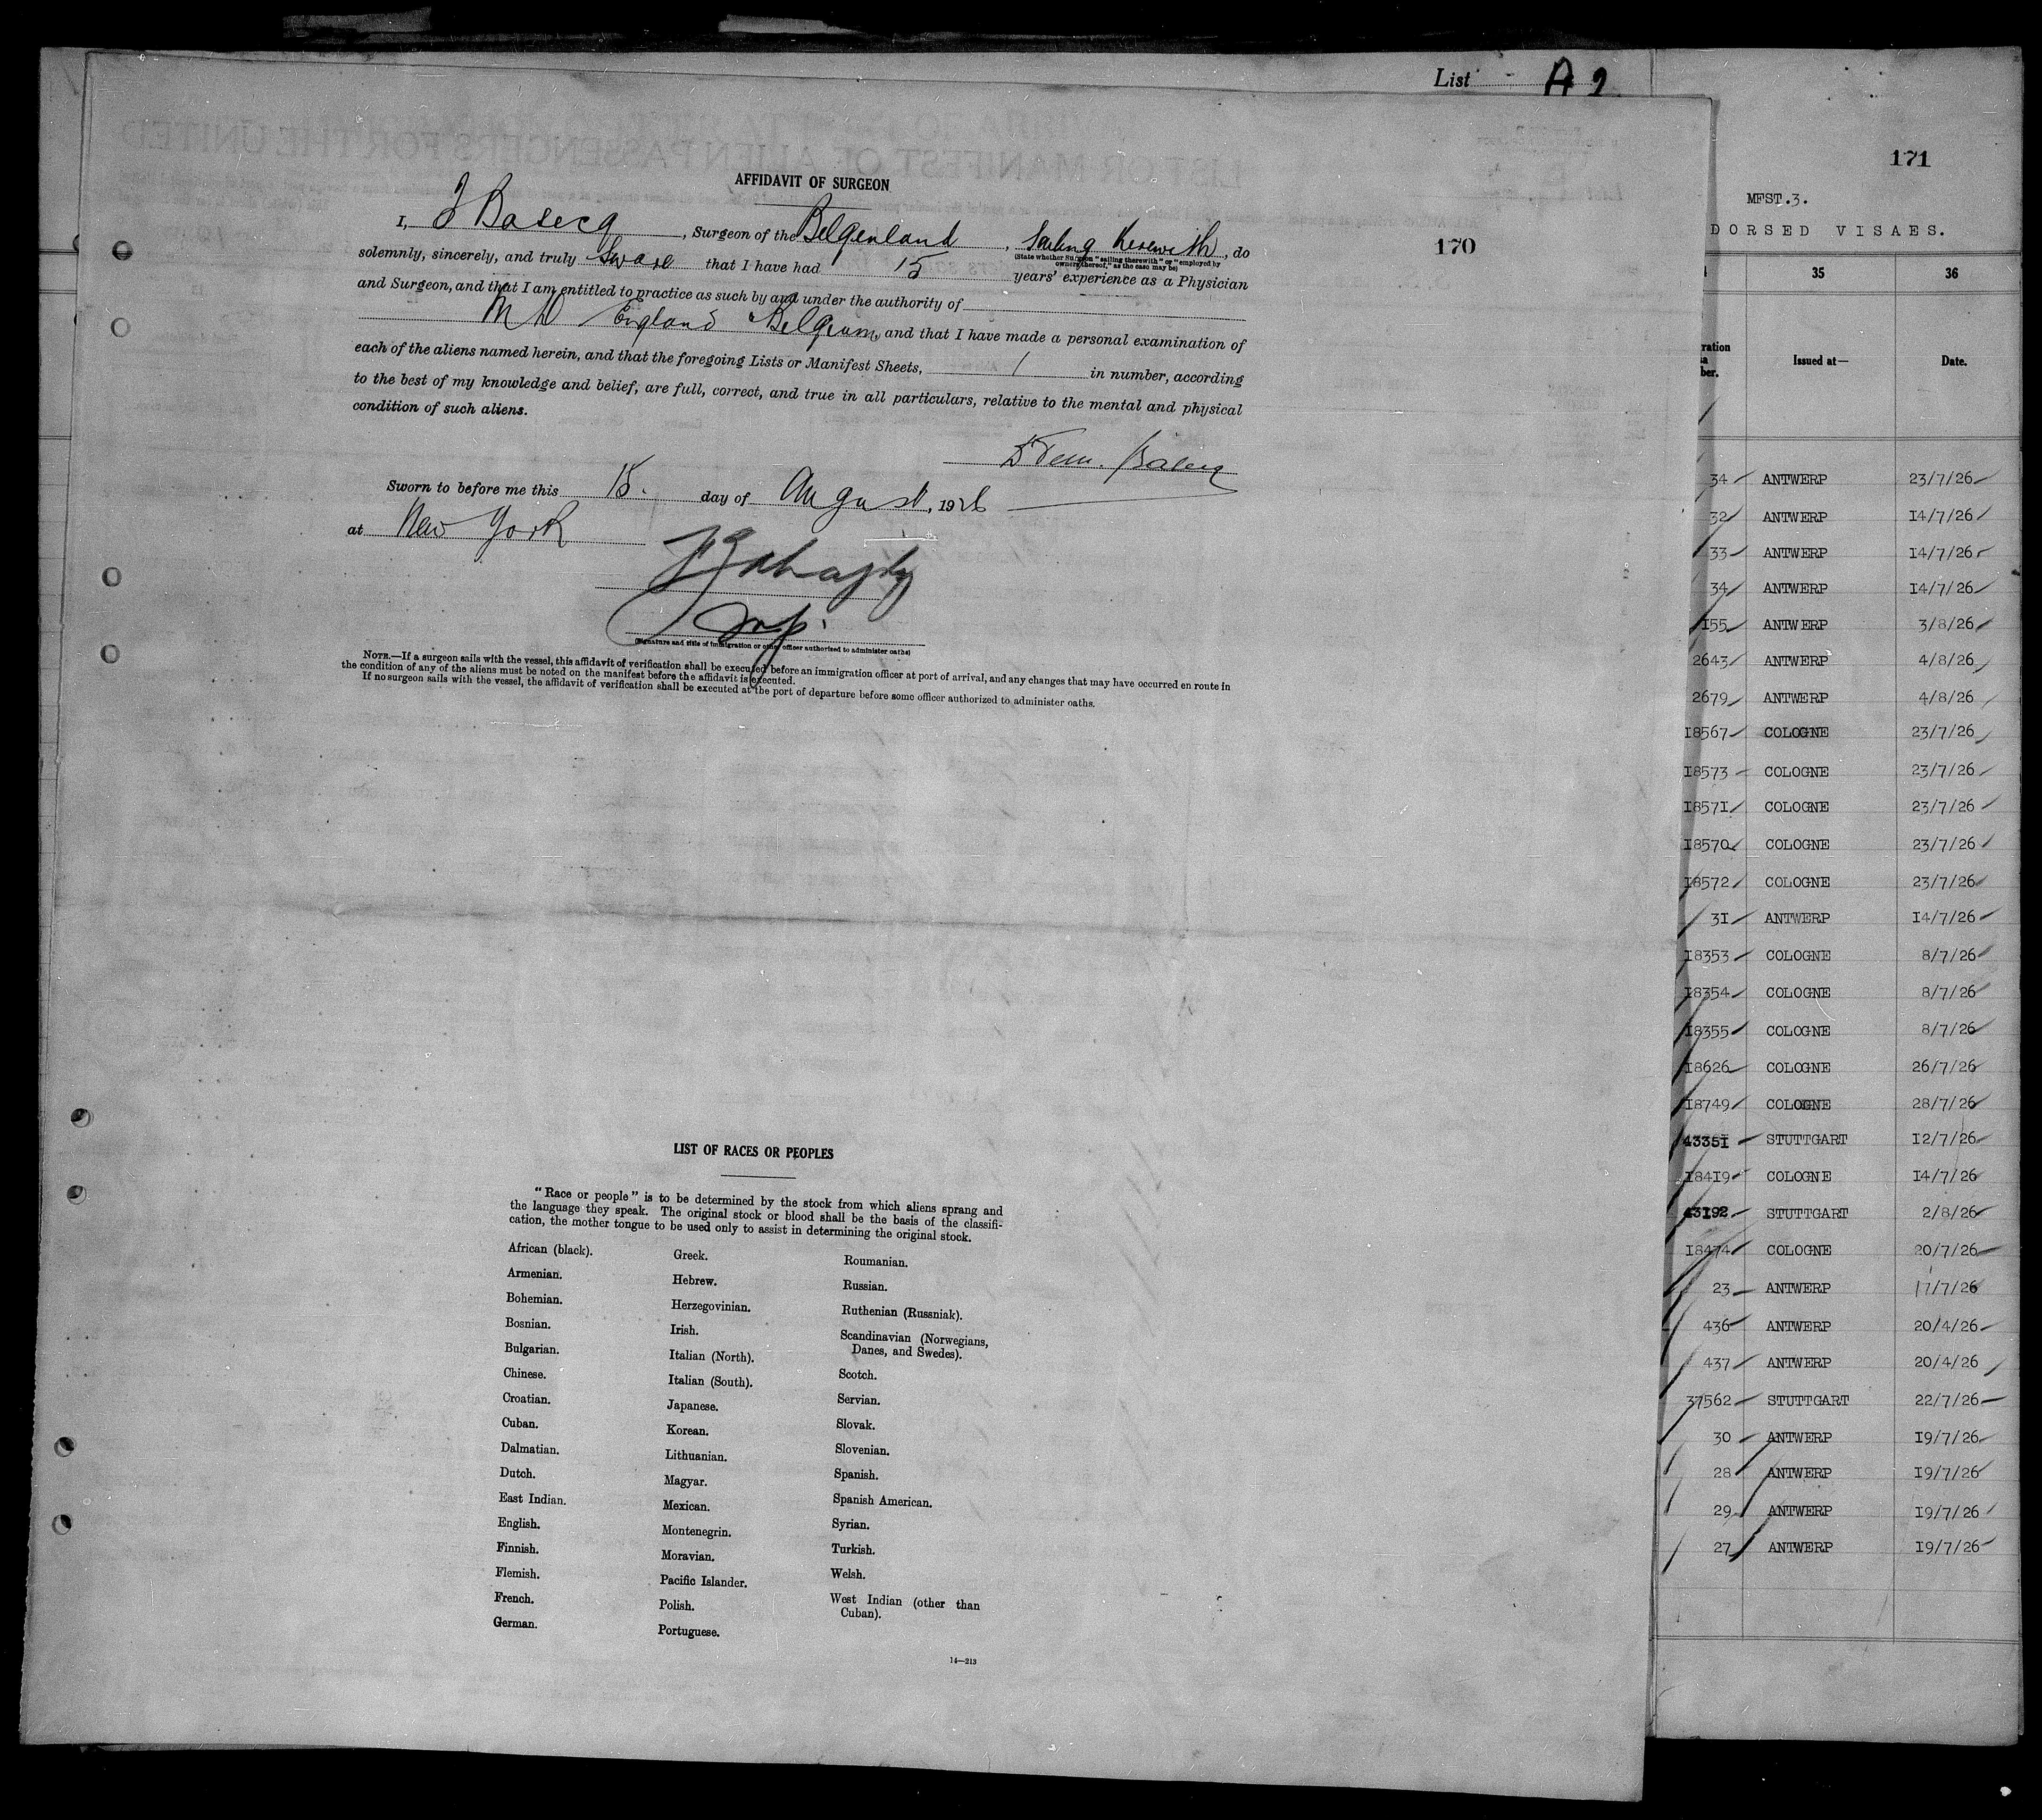 List A 2
AFFIDAVIT OF SURGEON
I, J Basecq, Surgeon of the Belgenland, Sailing herewith, do
(State whether Surgeon "sailing therewith" or "employed by
owners thereof," as the case may be)
solemnly, sincerely, and truly sware that I have had 15 years' experience as a Physician
and Surgeon, and that I am entitled to practice as such by and under the authority of
MD England Belgium, and that I have made a personal examination of
each of the aliens named herein, and that the foregoing Lists or Manifest Sheets, 1 in number, according
to the best of my knowledge and belief, are full, correct, and true in all particulars, relative to the mental and physical
condition of such aliens.
Sworn to before me this 15. day of August, 1926
at New York
Insp.
(Signature and title of immigration or other officer authorized to administer oaths)
NOTE.—If a surgeon sails with the vessel, this affidavit of verification shall be executed before an immigration officer at port of arrival, and any changes that may have occurred en route in
the condition of any of the aliens must be noted on the manifest before the affidavit is executed.
If no surgeon sails with the vessel, the affidavit of verification shall be executed at the port of departure before some officer authorized to administer oaths.
170
LIST OF RACES OR PEOPLES
"Race or people" is to be determined by the stock from which aliens sprang and
the language they speak. The original stock or blood shall be the basis of the classifi-
cation, the mother tongue to be used only to assist in determining the original stock.
African (black).
Armenian.
Bohemian.
Bosnian.
Bulgarian.
Chinese.
Croatian.
Cuban.
Dalmatian.
Dutch.
East Indian.
English.
Finnish.
Flemish.
French.
German.
Greek.
Hebrew.
Herzegovinian.
Irish.
Italian (North).
Italian (South).
Japanese.
Korean.
Lithuanian.
Magyar.
Mexican.
Montenegrin.
Moravian.
Pacific Islander.
Polish.
Portuguese.
Roumanian.
Russian.
Ruthenian (Russniak).
Scandinavian (Norwegians,
Danes, and Swedes).
Scotch.
Servian.
Slovak.
Slovenian.
Spanish.
Spanish American.
Syrian.
Turkish.
Welsh.
West Indian (other than
Cuban).
14—213
171
MFST.3.
DORSED VISAES.
35 36
ration
ber. Issued at— Date.
34 ANTWERP 23/7/26
32 ANTWERP 14/7/26
33 ANTWERP 14/7/26
34 ANTWERP 14/7/26
155 ANTWERP 3/8/26
2643 ANTWERP 4/8/26
2679 ANTWERP 4/8/26
18567 COLOGNE 23/7/26
18573 COLOGNE 23/7/26
18571 COLOGNE 23/7/26
18570 COLOGNE 23/7/26
18572 COLOGNE 23/7/26
31 ANTWERP 14/7/26
18353 COLOGNE 8/7/26
18354 COLOGNE 8/7/26
18355 COLOGNE 8/7/26
18626 COLOGNE 26/7/26
18749 COLOGNE 28/7/26
43351 STUTTGART 12/7/26
18419 COLOGNE 14/7/26
43192 STUTTGART 2/8/26
18474 COLOGNE 20/7/26
23 ANTWERP 17/7/26
436 ANTWERP 20/4/26
437 ANTWERP 20/4/26
37562 STUTTGART 22/7/26
30 ANTWERP 19/7/26
28 ANTWERP 19/7/26
29 ANTWERP 19/7/26
27 ANTWERP 19/7/26